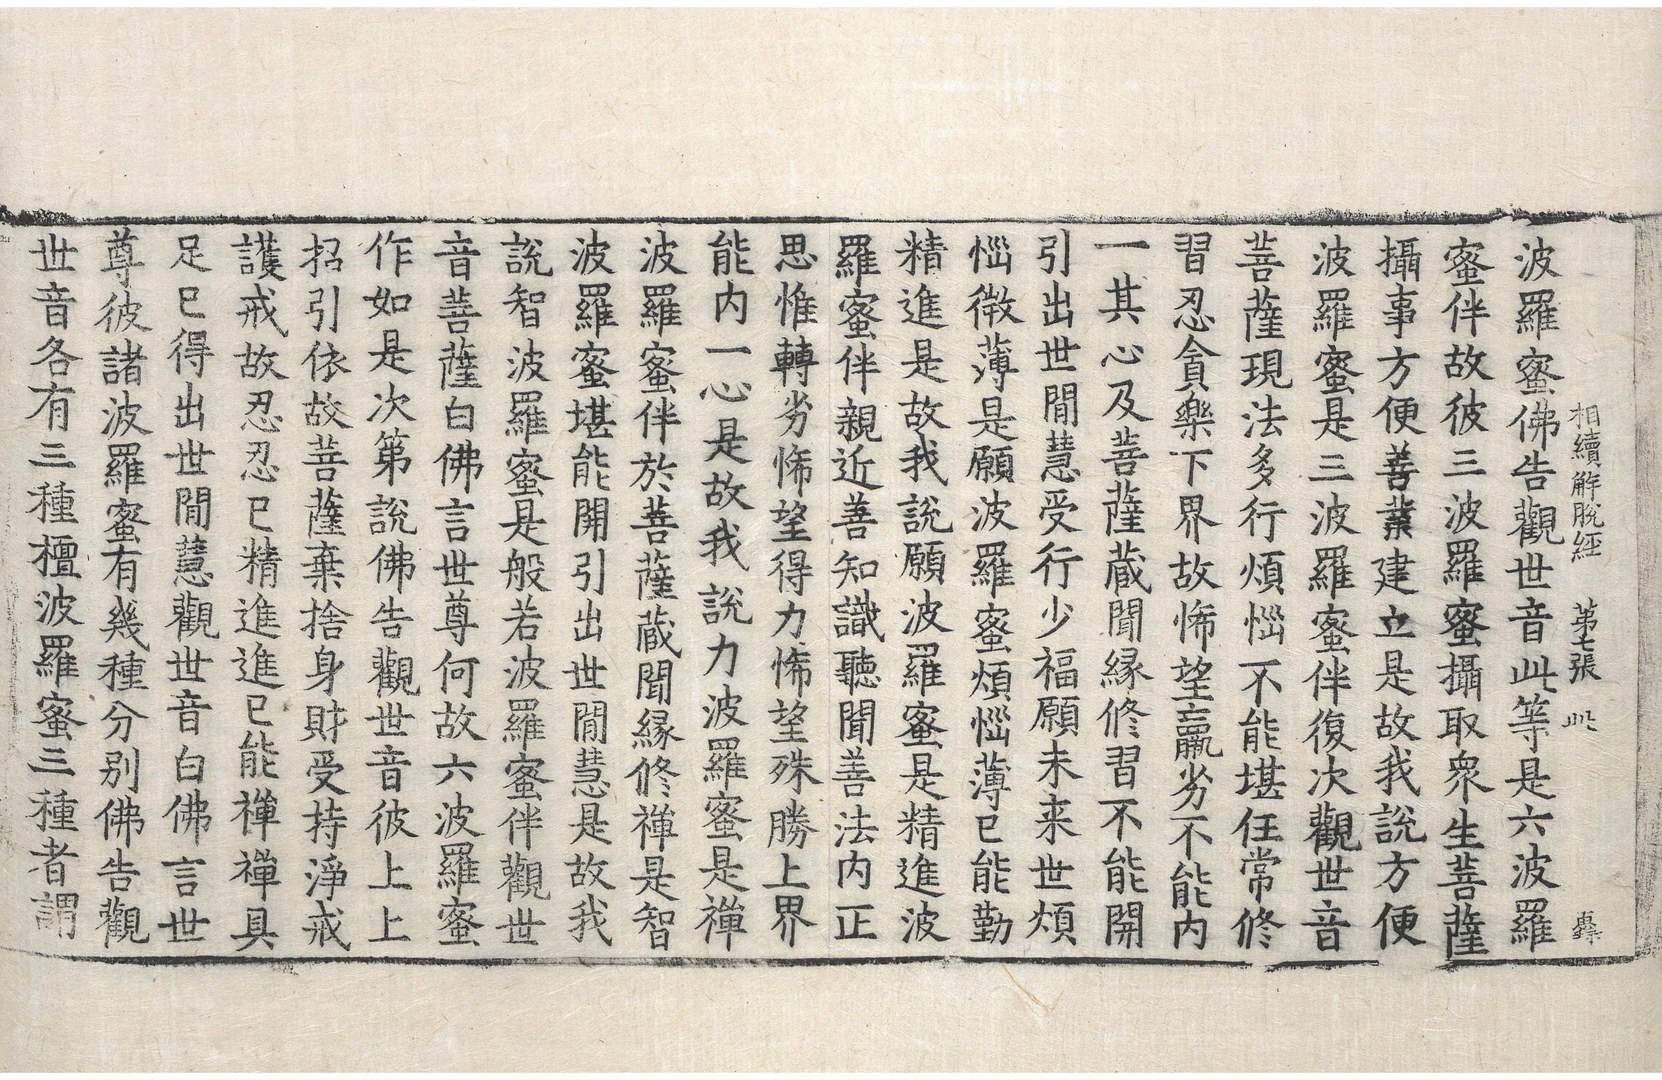 相續解脫經 第七張 此
波羅蜜佛告觀世音此等是六波羅
蜜伴故彼三波羅蜜攝取衆生菩薩
攝事方便善業建立是故我說方便
波羅蜜是三波羅蜜伴復次觀世音
菩薩現法多行煩惱不能堪任常修
習忍貪樂下界故悕望羸劣不能內
一其心及菩薩蔵聞縁修習不能開
引出世閒慧受行少福願未来世煩
惱微薄是願波羅蜜煩惱薄已能勤
精進是故我說願波羅蜜是精進波
羅蜜伴親近善知識聽聞善法內正
思惟轉劣悕望得力悕望殊勝上界
能內一心是故我說力波羅蜜是禪
波羅蜜伴於菩薩蔵聞縁修禪是智
波羅蜜堪能開引出世閒慧是故我
說智波羅蜜是般若波羅蜜伴觀世
音菩薩白佛言世尊何故六波羅蜜
作如是次第說佛告觀世音彼上上
招引依故菩薩棄捨身財受持淨戒
護戒故忍忍已精進進已能禪禪具
足已得出世閒慧觀世音白佛言世
尊彼諸波羅蜜有幾種分別佛告觀
世音各有三種檀波羅蜜三種者謂